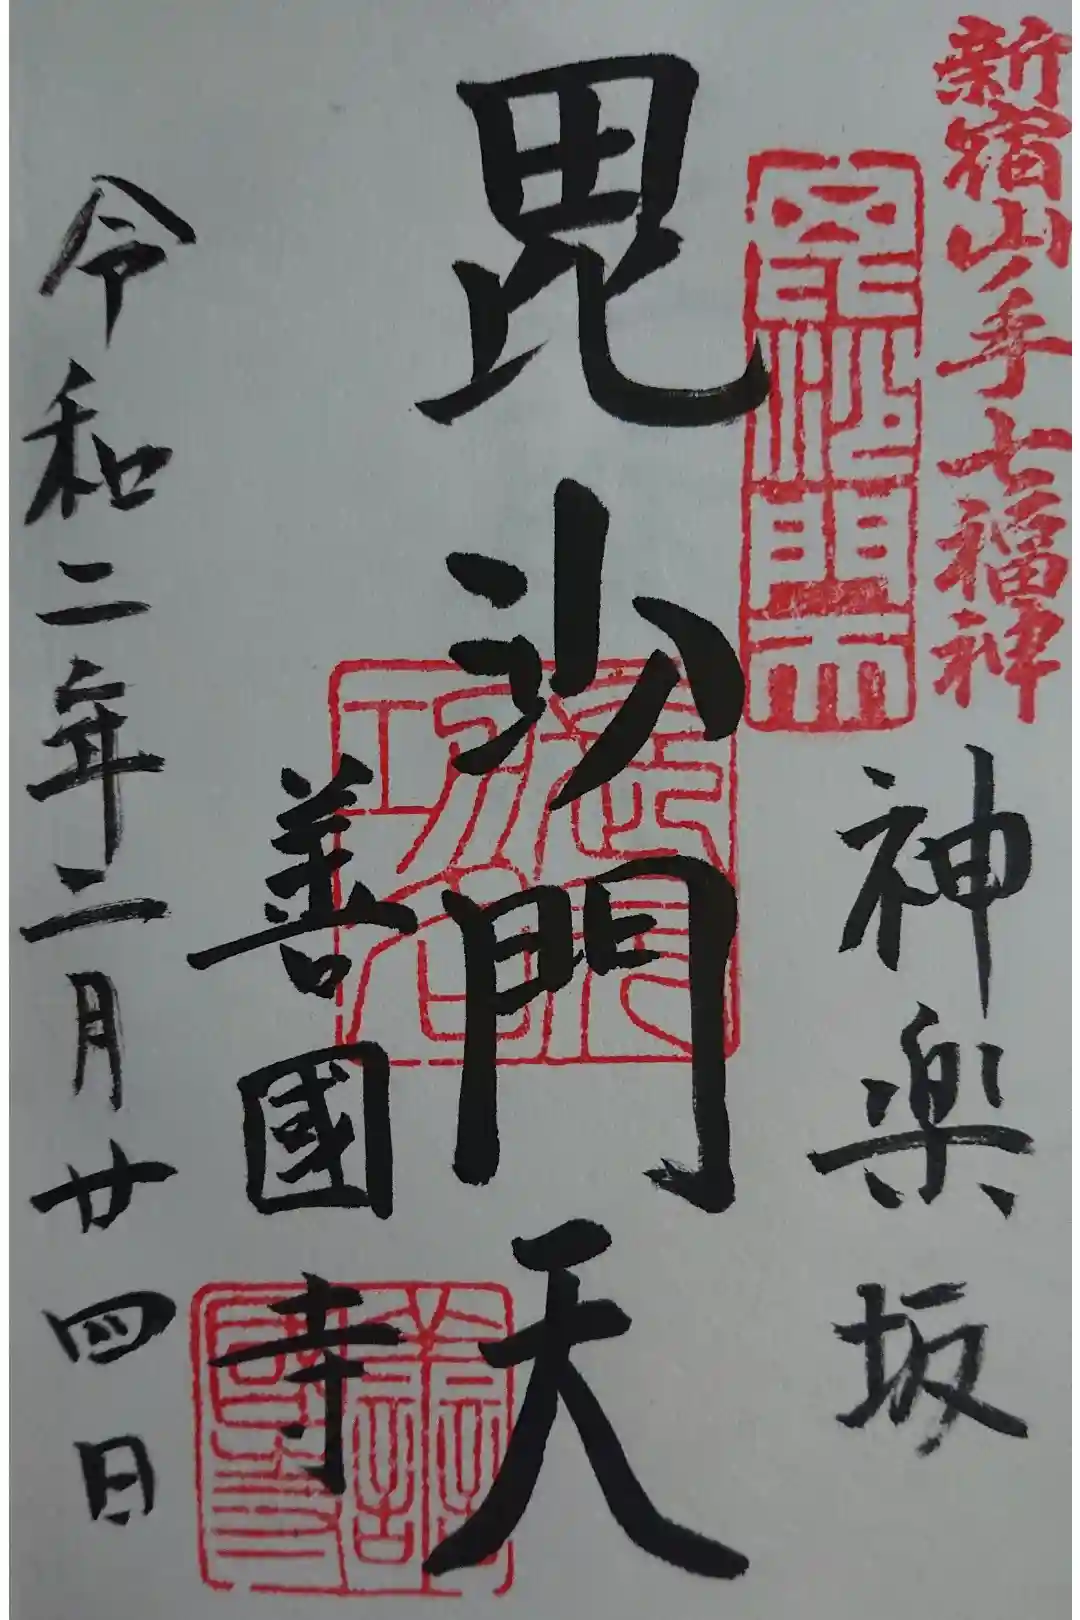 新宿山ノ手七福神
神楽坂
毘沙門天
善國寺
令和二年二月廿四日